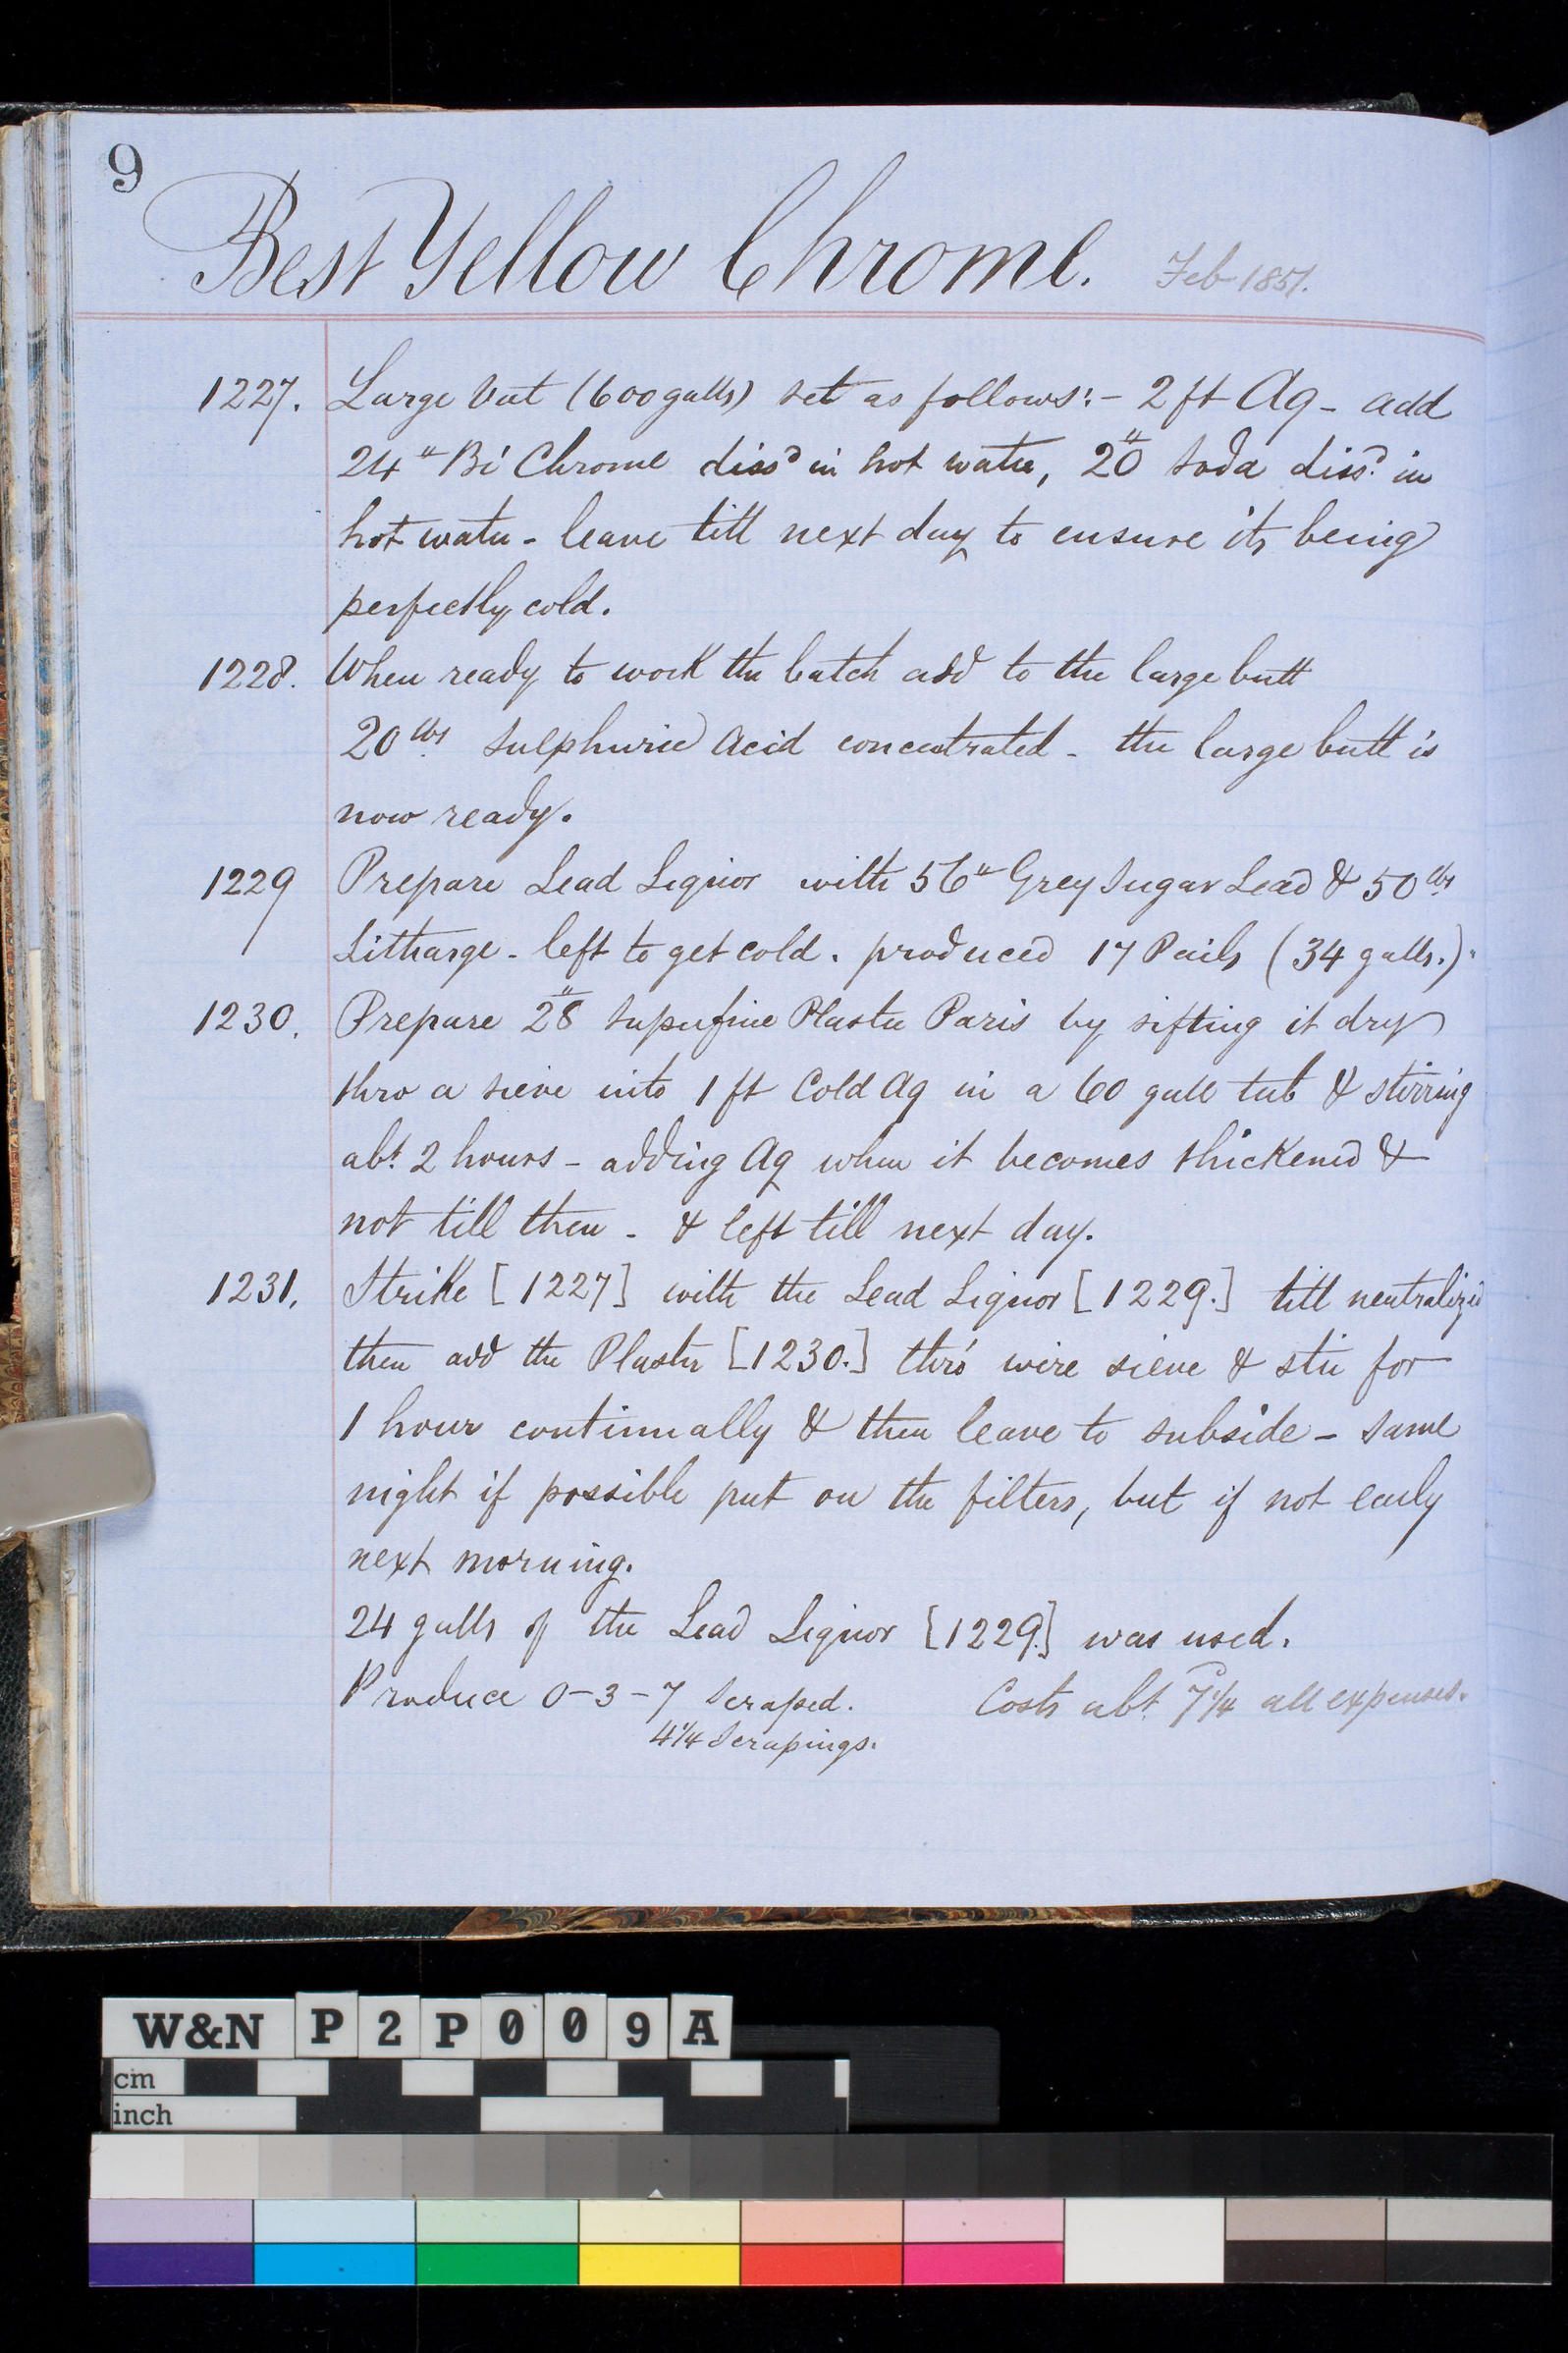 9
Best Yellow Chrome. Feb 1851.
1227. Large Vat (600 galls) set as follows:- 2 ft Aq - add
24" Bi Chrome dissd in hot water, 20" Soda dissd. in
hot water - leave till next day to ensure its being
perfectly cold.
1228. When ready to work the batch add to the large butt
20 lbs Sulphuric Acid concentrated - the large butt is
now ready.
1229 Prepare Lead Liquor with 56" Grey Sugar Lead & 50 lbs
Litharge - left to get cold. produced 17 Pails (34 galls.).
1230. Prepare 28" Superfine Plaster Paris by sifting it dry
thro a sieve into 1 ft Cold Aq in a 60 gall tub & stirring
abt. 2 hours - adding Aq when it becomes thickened &
not till then - & left till next day.
1231. Strike [1227] with the Lead Liquor [1229.] till neutralized
then add the Plaster [1230.] thro' wire sieve & stir for
1 hour continually & then leave to subside - same
night if possible put on the filters, but if not early
next morning.
24 galls of the Lead Liquor [1229.] was used.
Produce 0-3-7 Scraped. Costs abt. 7 1/4 all expenses.
4 1/4 Scrapings.
W&N P2P009A
cm
inch